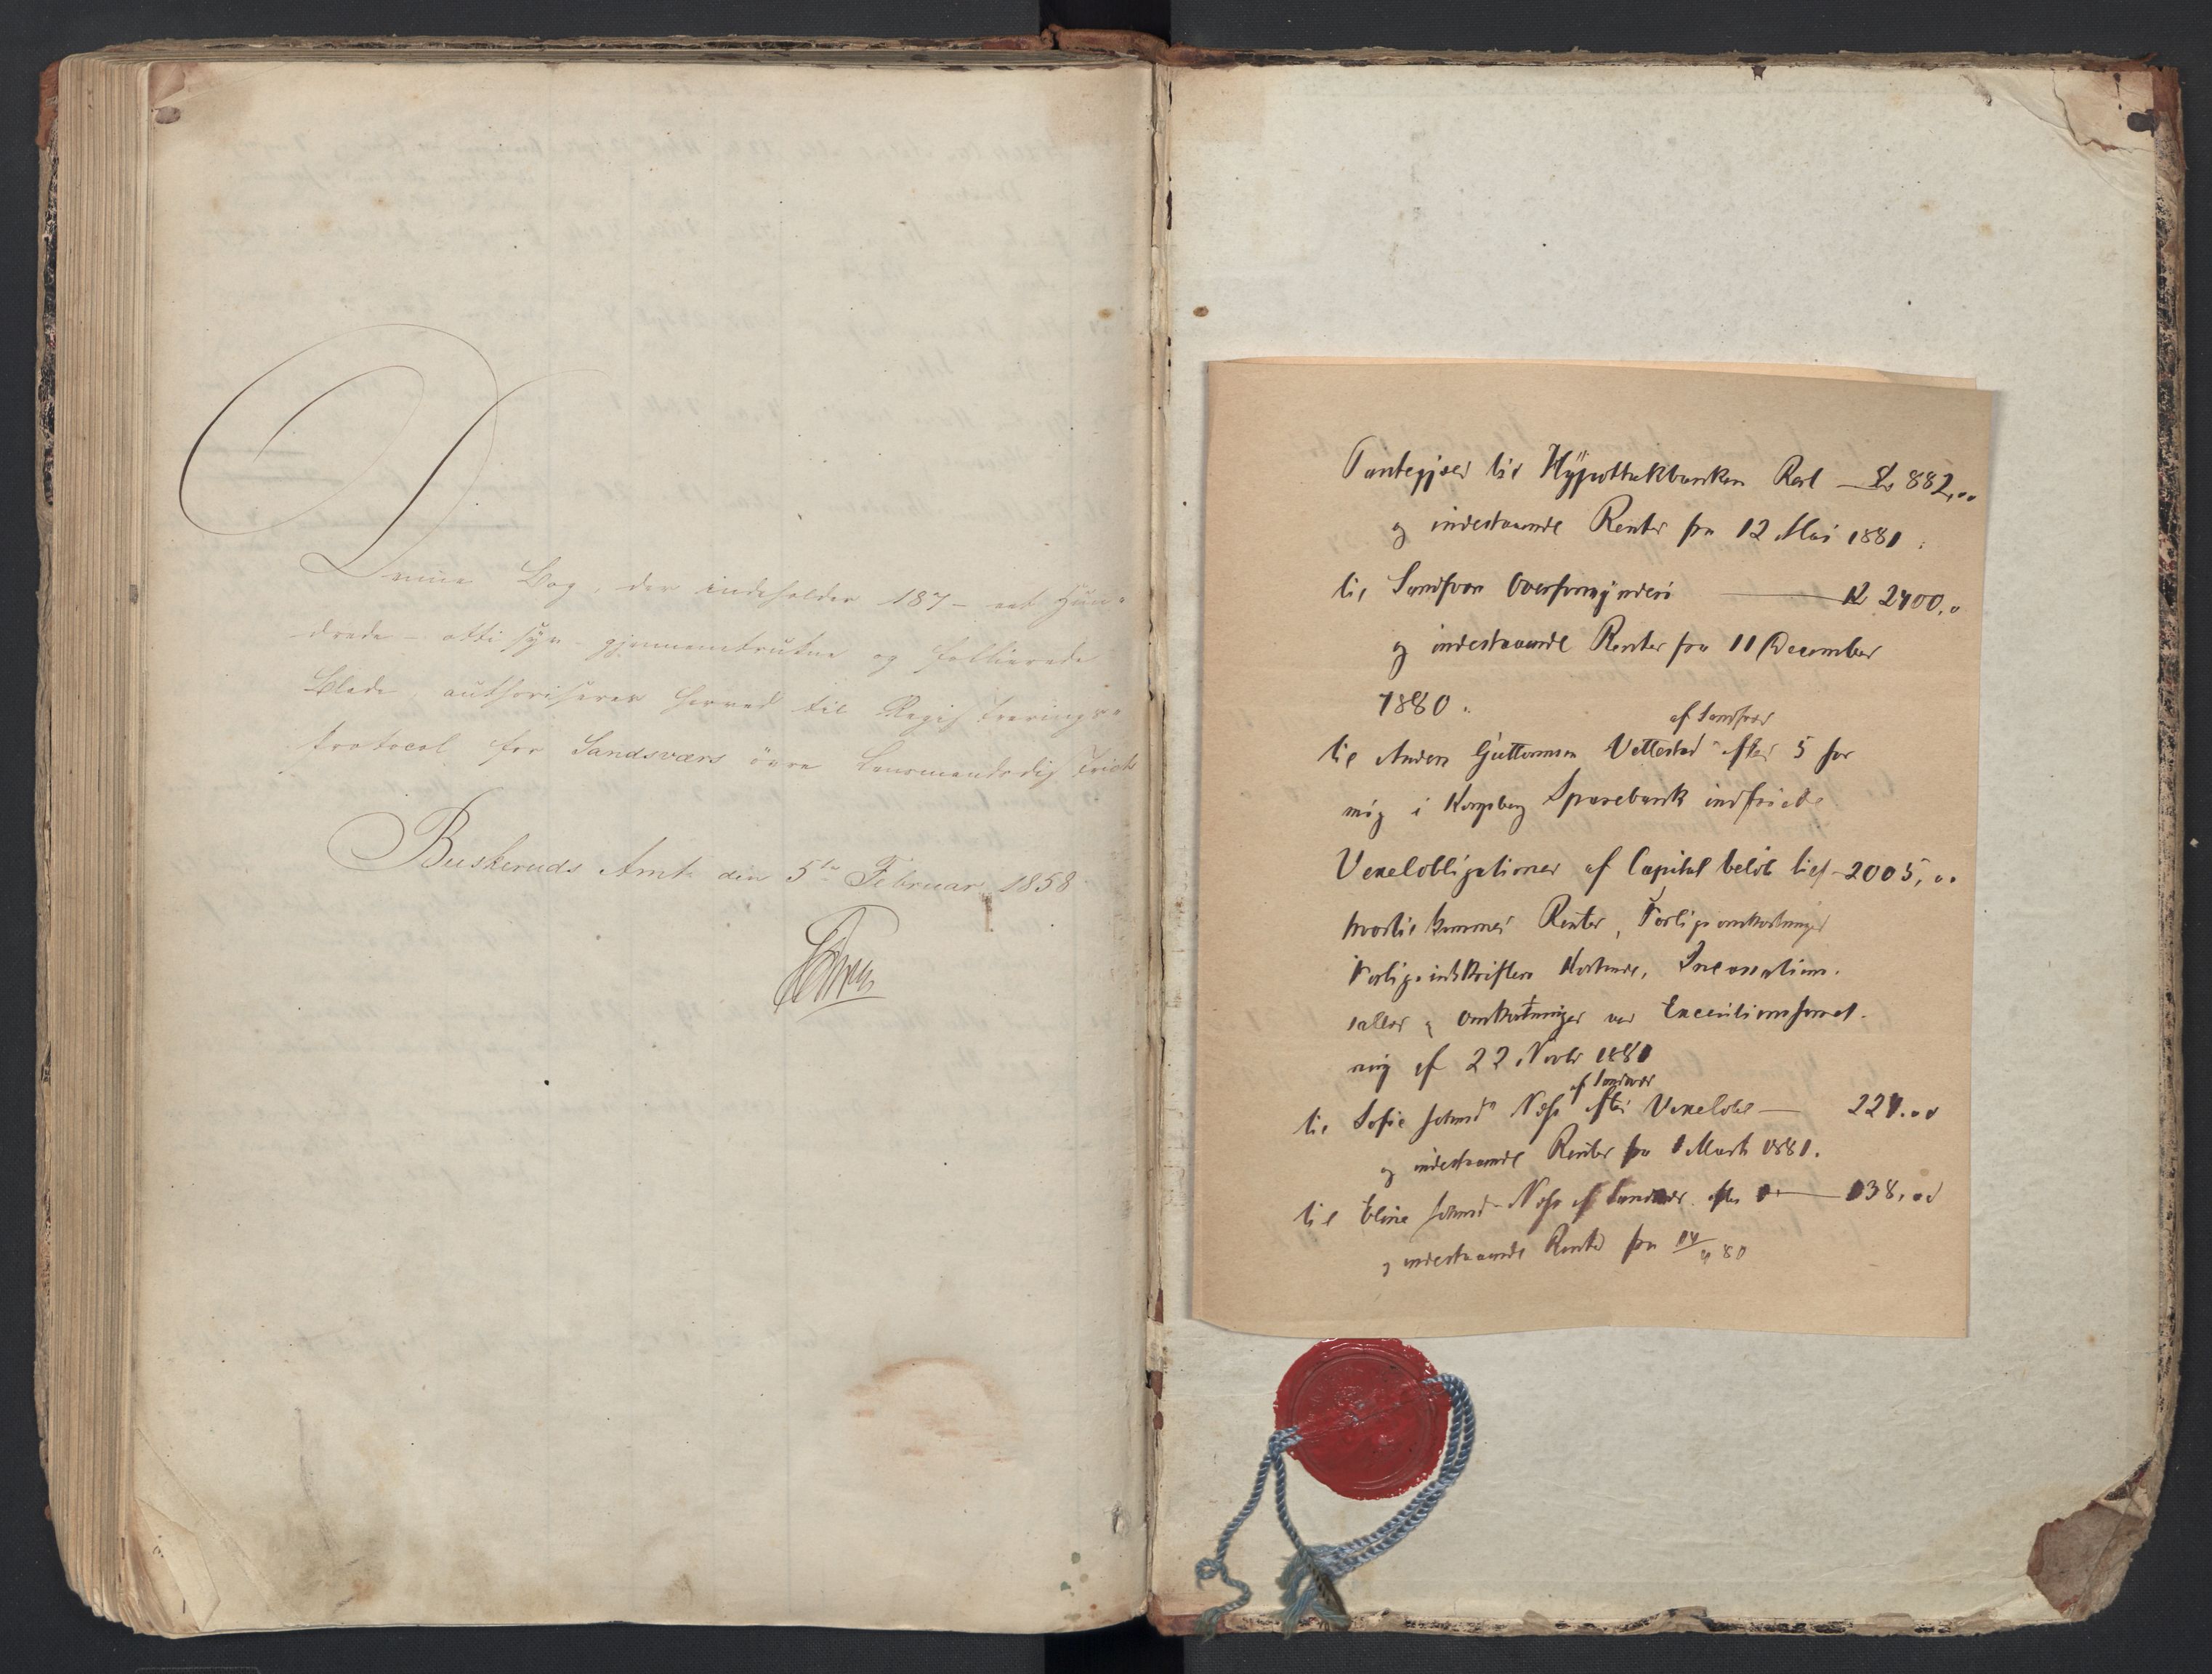 Denne Bog, der indeholder 187 – eet Hun-
drede – otti syv – gjennemtrukne og follierede
Blade, authoriseres herved til Registrerings-
protocol for Sandsværs övre Lensmandsdistrict
Buskeruds Amt den 5te Februar 1858
Pantegjæld til Hÿpothekbanken Rest — Kr 882,00
og indestaaende Renter fra 12 Mai 1881.
til Sandsvær Overformynderi — Kr 2400.0
og indestaaende Renter fra 11 December
1880.
af Sandsvær
til Anders Guttormsen Vettestad efter 5 for
mig i Kongsberg Sparebank indfriede
Vexelobligationer af Capital beløb tils 2005,00
hvortil kommer Renter, Forligsomkostninger
Forligsindskriftens Kostende, Incassation.
saller og Omkostninger ved Executionsforret-
ning af 22 Novbr 1881
af Sandsvær
til Sofie Johnsd Næss efter Vexelobl — 224.00
og indestaaende Renter fra 1 Marts 1881.
til Eline Johnsd Næss af Sandsvær efter — 138,00
og indestaaende Renter fra 14/4 80